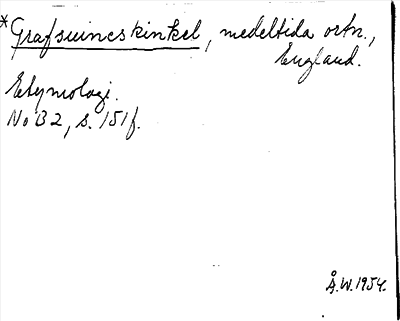 *Grafsuineskinkel, medeltida ortn.,
England.
Etymologi.
NoB 2, s. 151f.
Å.W. 1954.